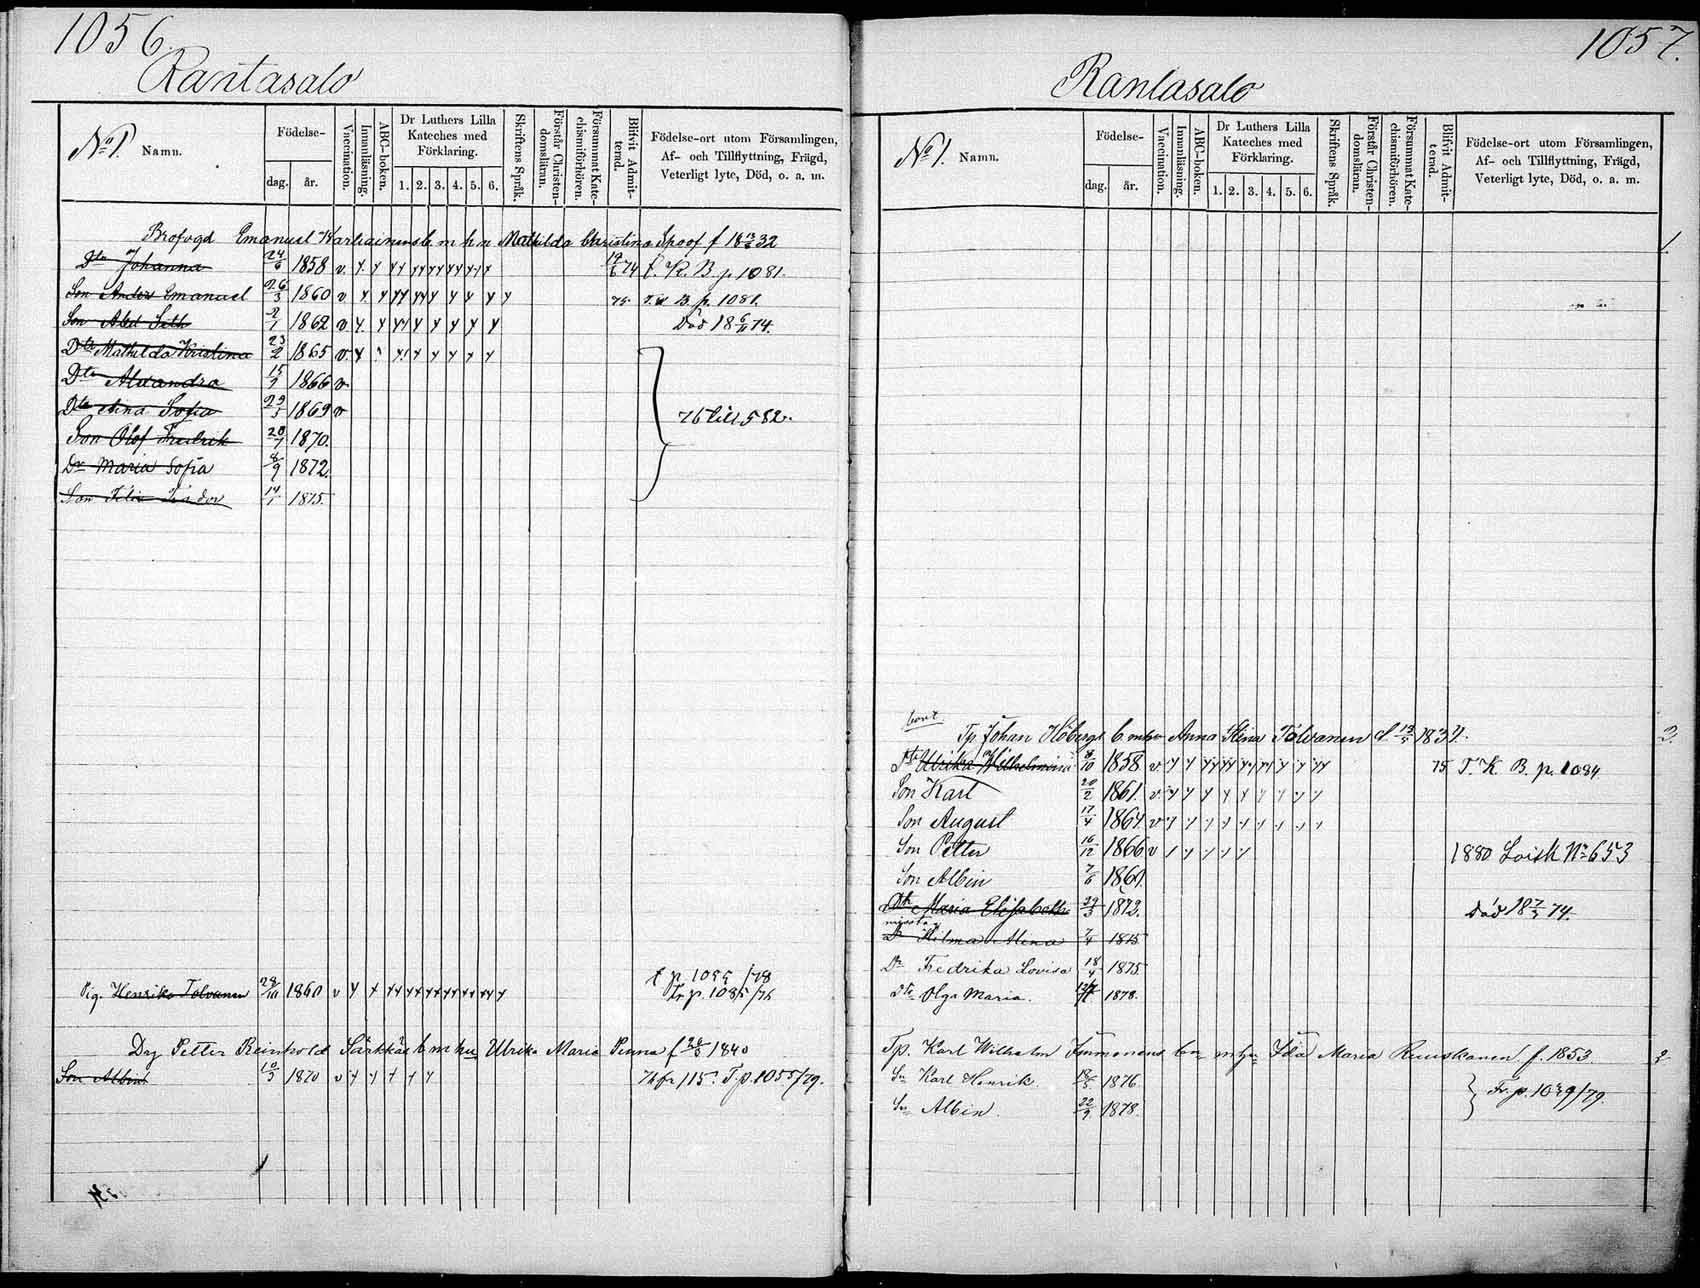 1056.
Rantasalo
No 1. Namn.
Födelse-
dag. år.
Vaccination.
Innanläsning.
ABC-boken.
Dr Luthers Lilla Kateches med Förklaring.
1. 2. 3. 4. 5. 6.
Skriftens Språk.
Förstår Christendomsläran.
Försummat Katechismiförhören.
Blifvit Admitterad.
Födelse-ort utom Församlingen,
Af- och Tillflyttning, Frägd,
Veterligt lyte, Död, o. a. m.
Brofogd Emanuel b m h n Mathilda Christina Spoof f 18 32
Dtr Johanna 24/6 1858 v 74 R. B p. 1081.
Son Anders Emanuel 26/3 1860 v 75 B. p. 1081.
Son Abel Seth 2/1 1862 v Död 18 6/11 74.
Dtr Mathilda Kristina 23/2 1865 v.
Dtr Alexandra 15/7 1866 v
Dtr Anna Sofia 1869 v 76 till 582.
Son Olof Fredrik 20/7 1870.
Dr Maria Sofia 8/9 1872.
Son 14/1 1875.
Pig. Henrika Tolvanen 1860 v p. 1055/78
Fr p. 1085/76
Drg Petter Reinhold Särkkäs b m hu Ulrika Maria Pinna f 1840
Son Albin 1870 v 76 fr 115. T p. 1055/79.
1057.
Rantasalo
No 1. Namn.
Födelse-
dag. år.
Vaccination.
Innanläsning.
ABC-boken.
Dr Luthers Lilla Kateches med Förklaring.
1. 2. 3. 4. 5. 6.
Skriftens Språk.
Förstår Christendomsläran.
Försummat Katechismiförhören.
Blifvit Admitterad.
Födelse-ort utom Församlingen,
Af- och Tillflyttning, Frägd,
Veterligt lyte, Död, o. a. m.
1
bort
Tp Johan Höbergs b m hu Anna Stina Tolvanen f. 1834. 2.
Dtr Ulrika Wilhelmina 8/10 1858 v. 75 T. K. B. p. 1084
Son Karl 20/2 1861. v.
Son August 17/4 1864 v
Son Petter 16/12 1866 v 1880 No 653
Son Albin 7/6 1869.
Dtr Maria Elisabeth 29/3 1872. Död 18 7/5 74.
Dr Hilma Alena 7/4 1875
Dr Fredrika Lovisa 18/4 1875.
Dtr Olga Maria. 1878.
Tp. Karl Wilhelm Immonens b m hu Ida Maria Ruuskanen f. 1853. 3
Sn Karl Henrik. 18/5 1876. Fr. p. 1029/79.
Sn Albin. 22/9 1878.